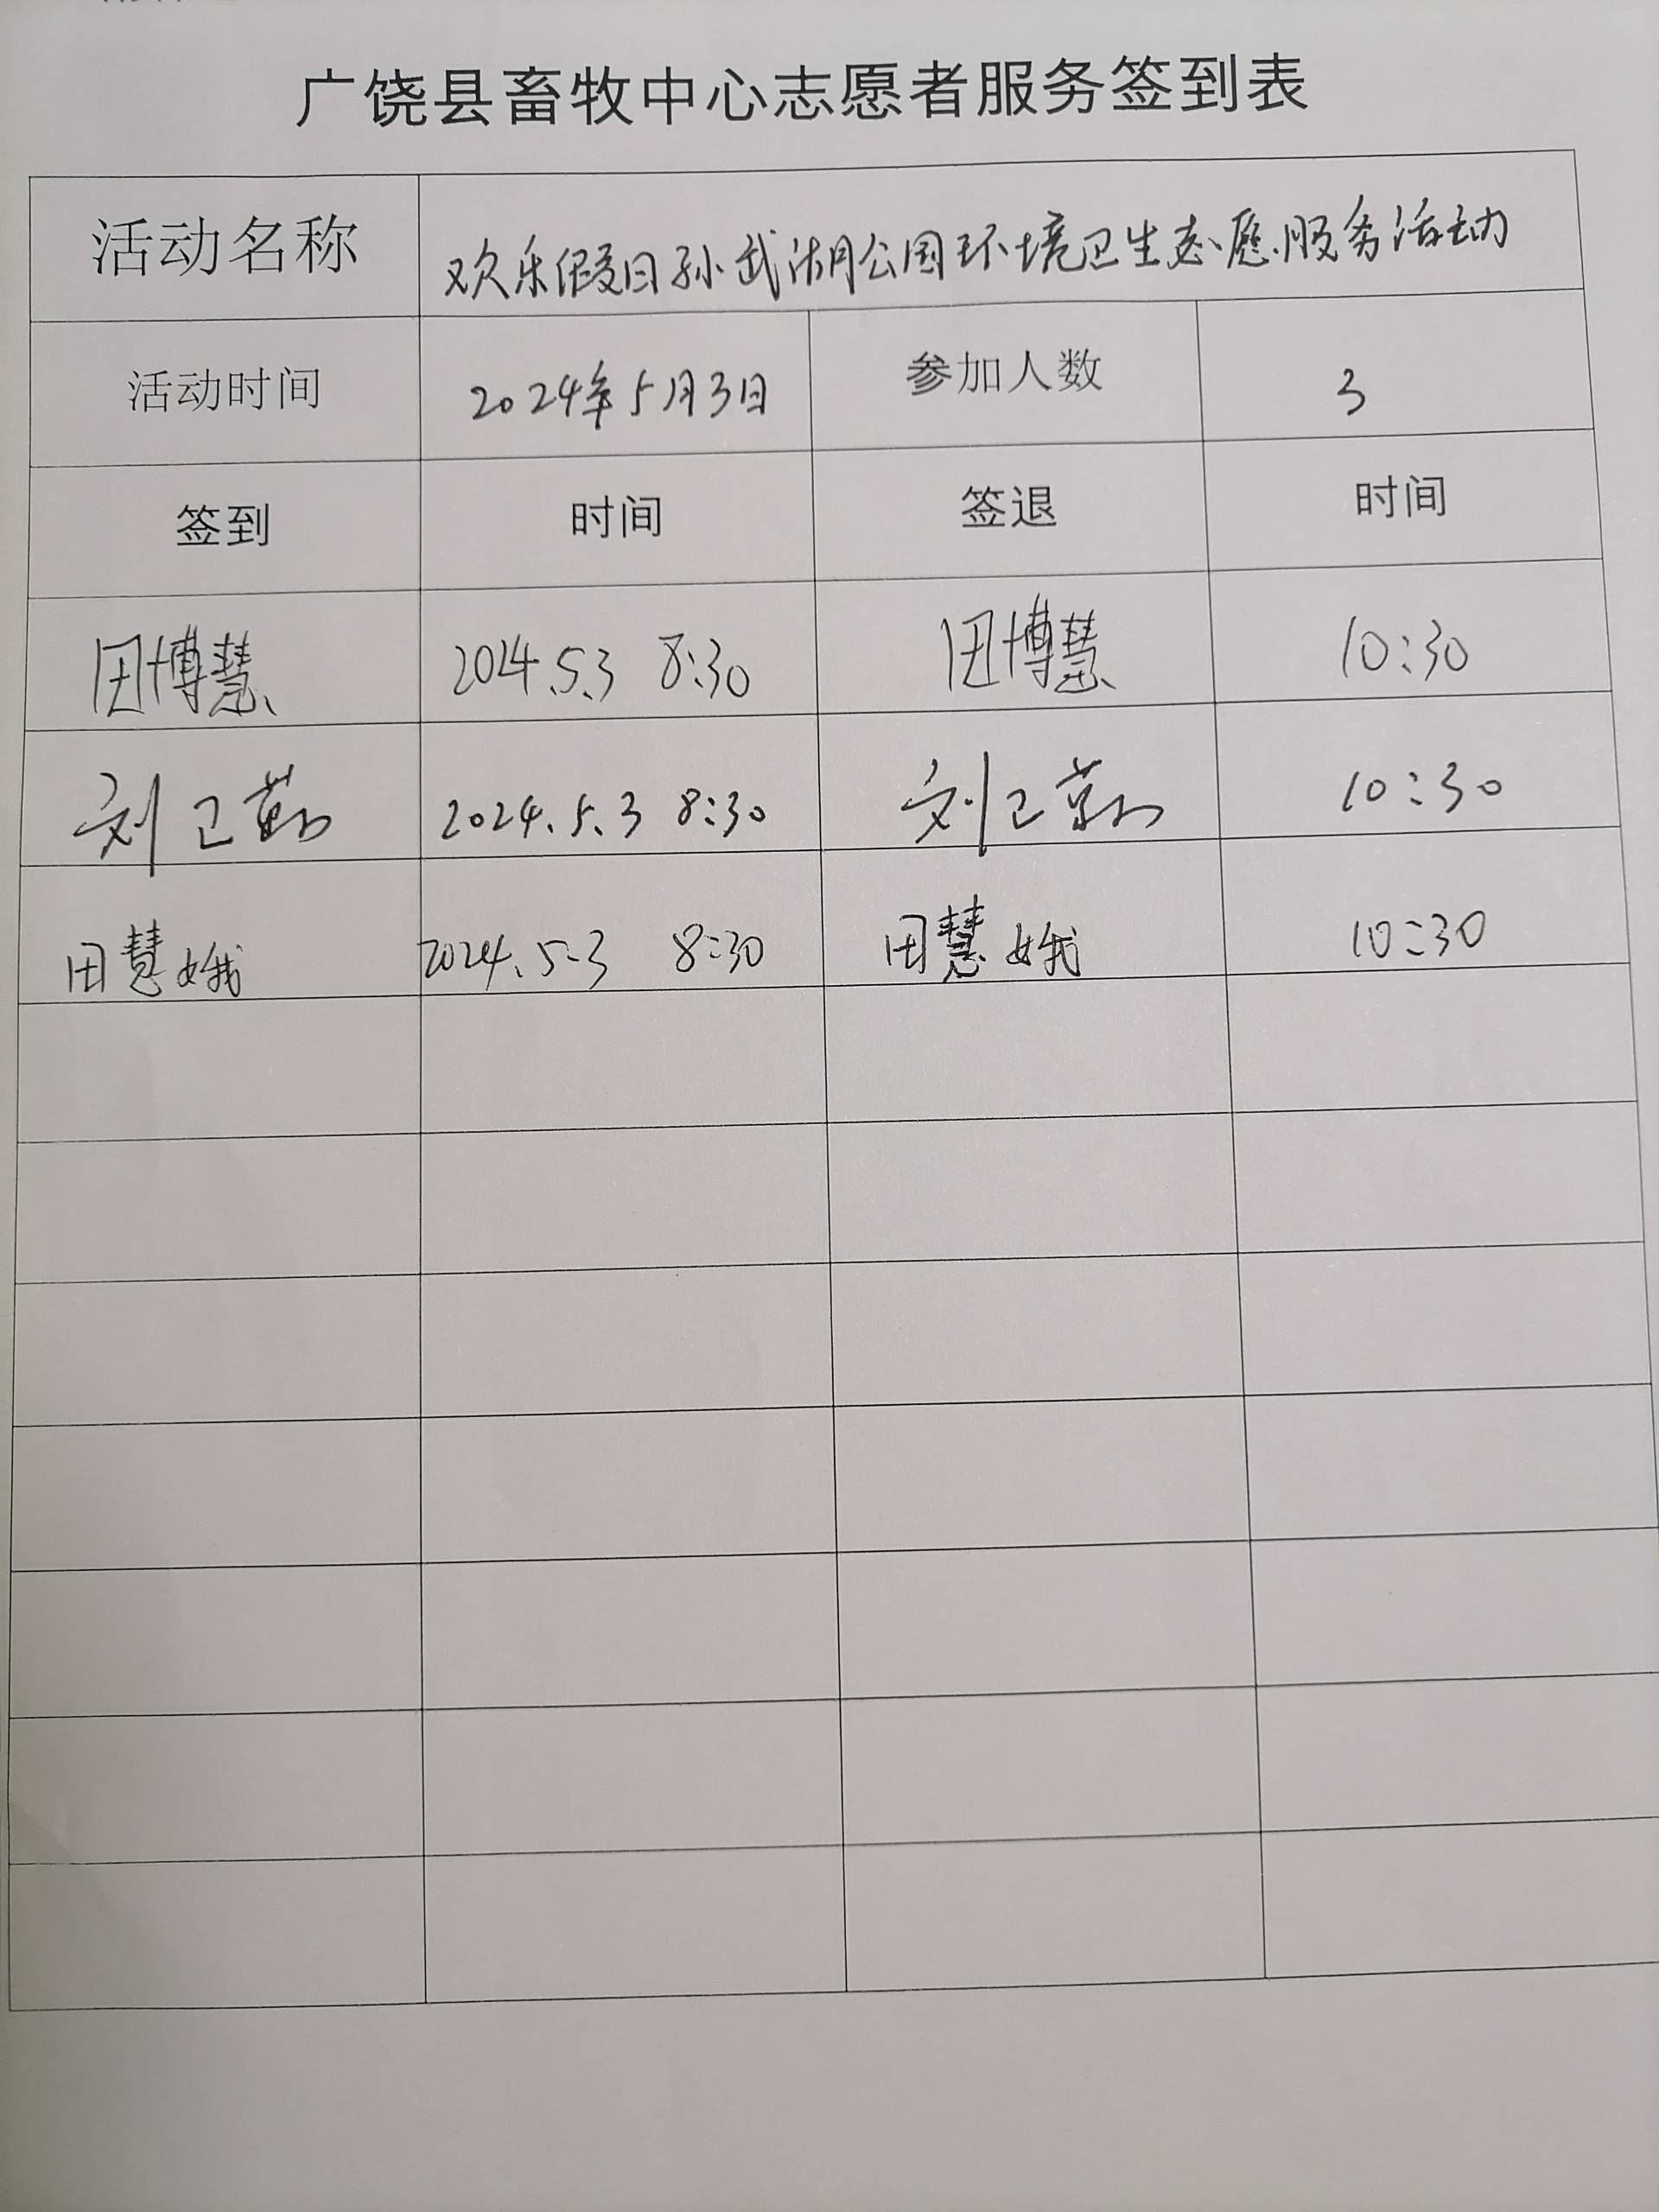 广饶县畜牧中心志愿者服务签到表
活动名称 欢乐假日孙武湖公园环境卫生志愿服务活动
活动时间 2024年5月3日 参加人数 3
签到 时间 签退 时间
田博慧 2024.5.3 8:30 田博慧 10:30
刘卫勤 2024.5.3 8:30 刘卫勤 10:30
田慧娥 2024.5.3 8:30 田慧娥 10:30